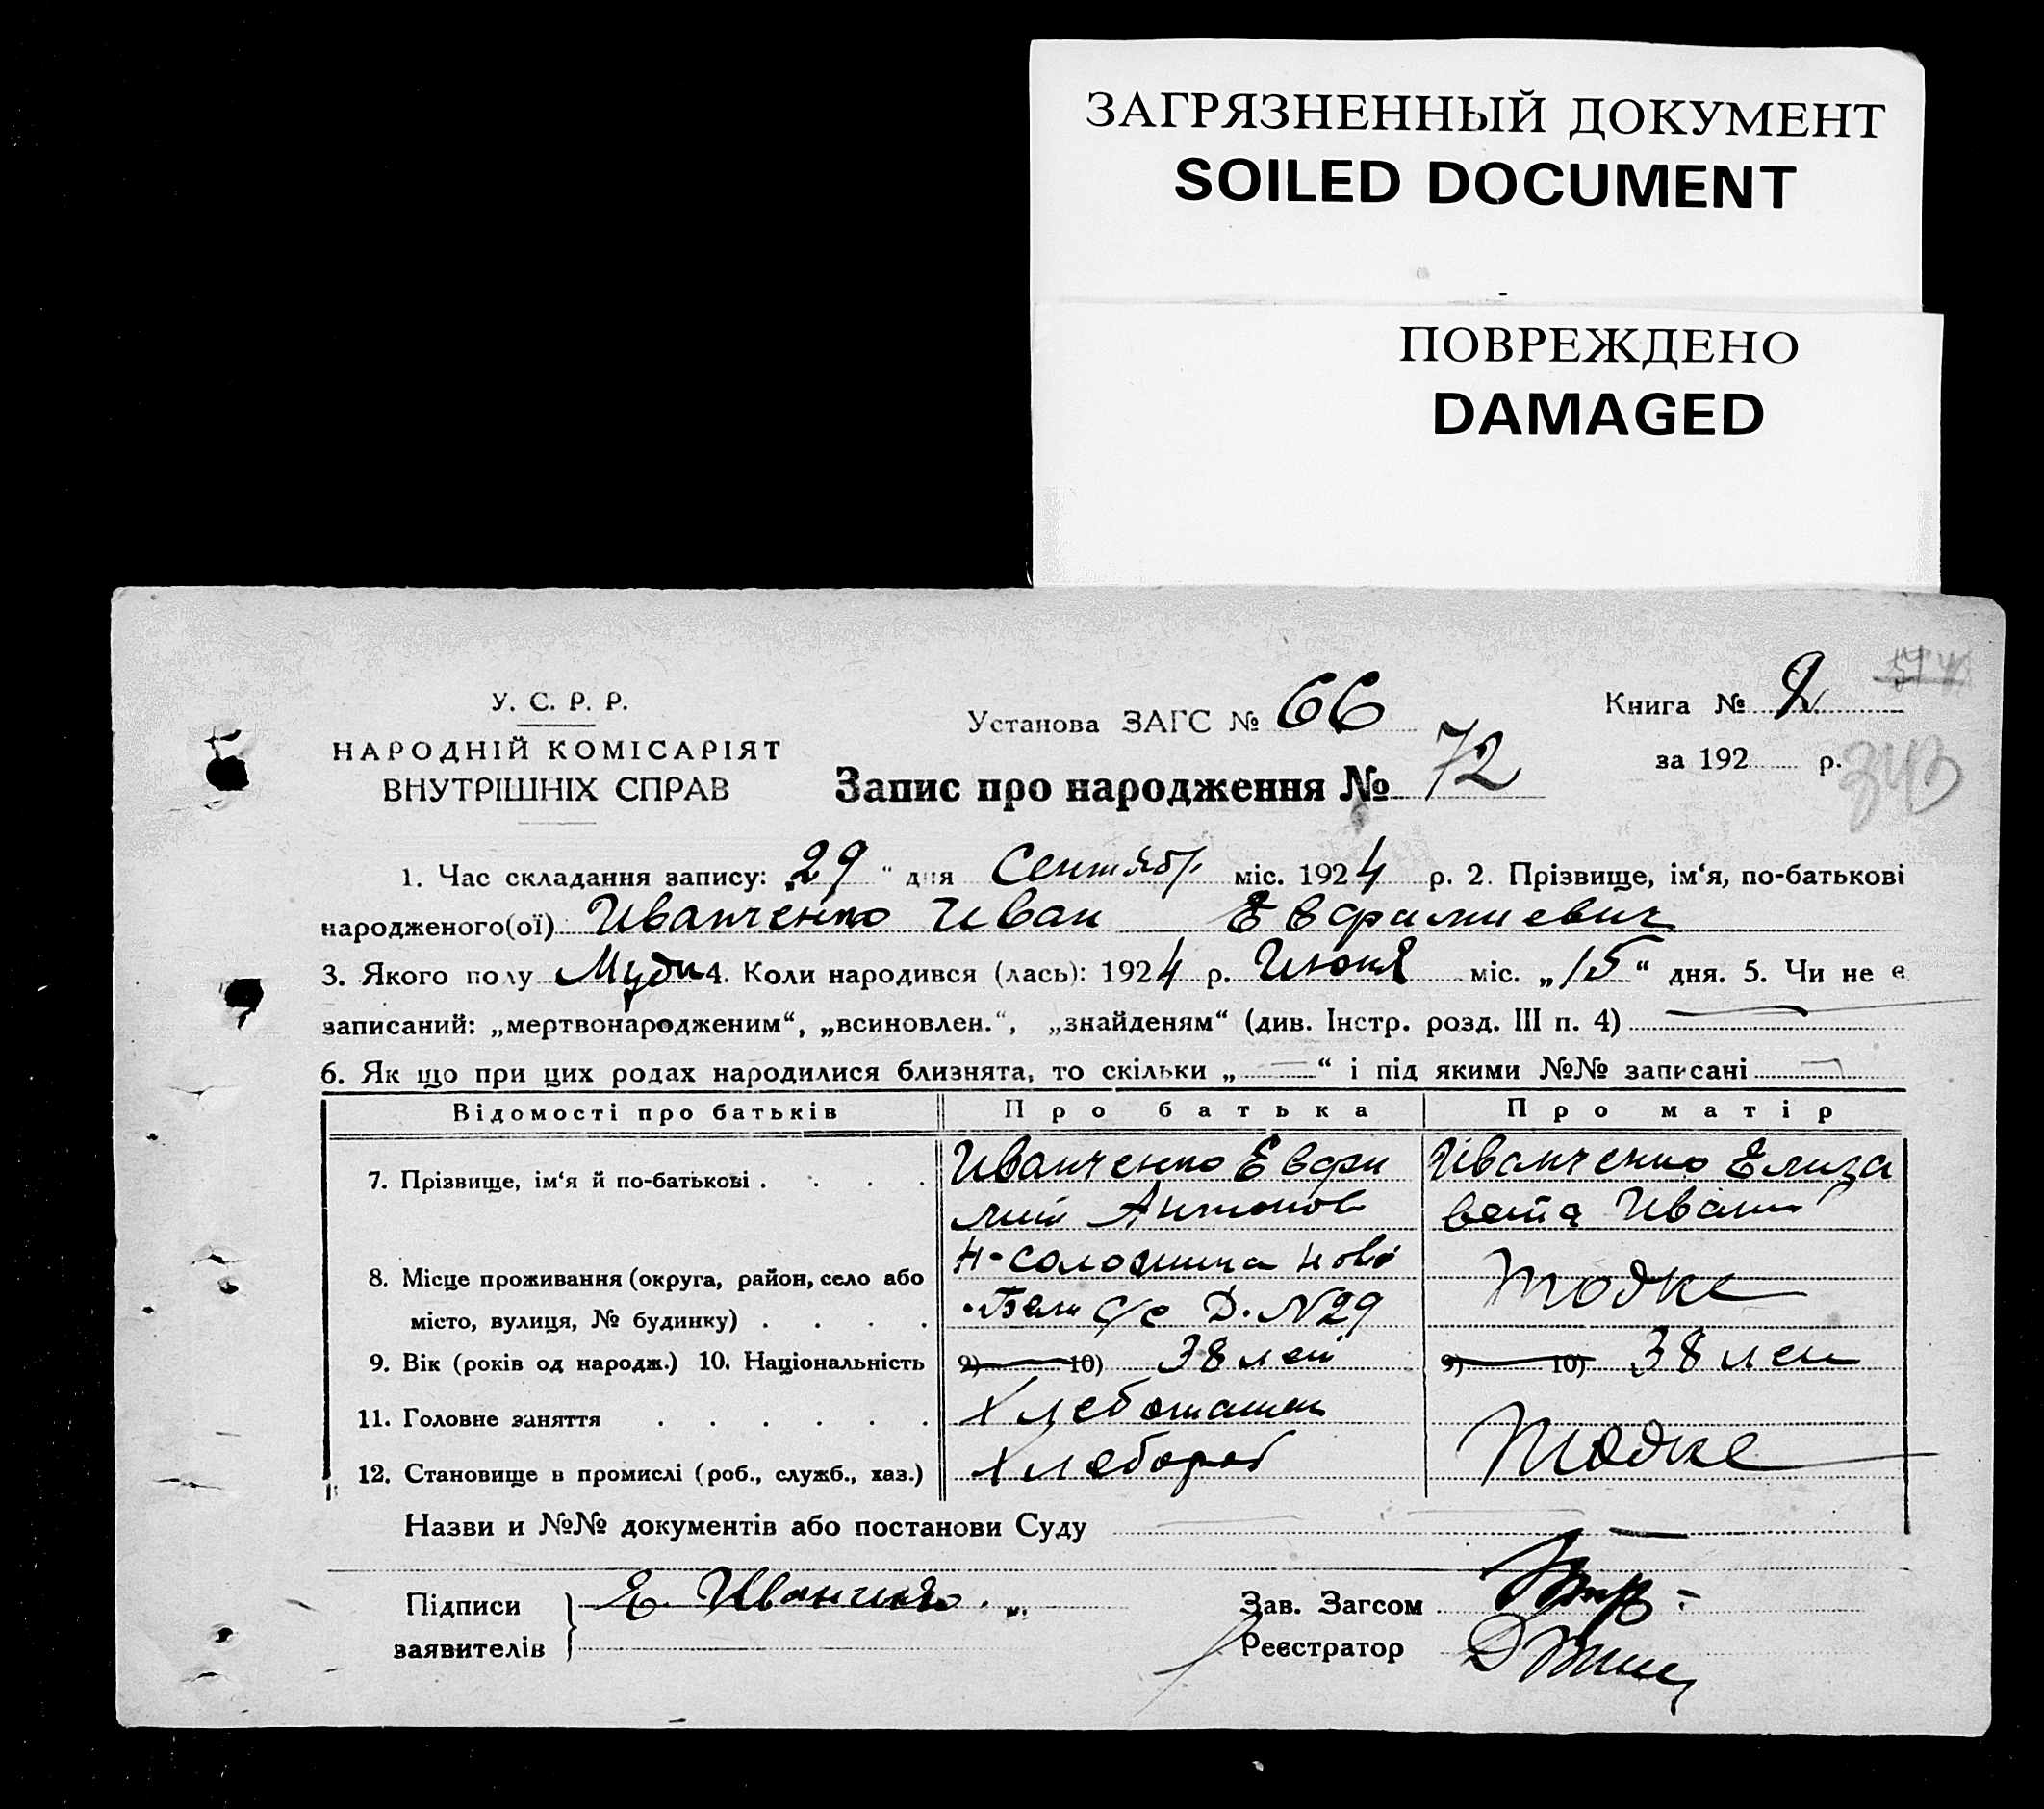 ЗАГРЯЗНЕННЫЙ ДОКУМЕНТ
SOILED DOCUMENT
ПОВРЕЖДЕНО
DAMAGED
У. С. Р. Р.
НАРОДНІЙ КОМІСАРІЯТ
ВНУТРІШНІХ СПРАВ
Установа ЗАГС № 66
Запис про народження № 72
Книга № 2
за 192 р.
343
1. Час складання запису: 29 " дня Сентябр міс. 1924 р. 2. Прізвище, ім‘я, по-батькові
народженого(ої) Иванченко Иван Евфимиевич
3. Якого полу 4. Коли народився (лась): 1924 р. Июня міс. „15“ дня. 5. Чи не є
записаний: „мертвонародженим“, „всиновлен.“, „знайденям“ (див. Інстр. розд. III п. 4)
6. Як що при цих родах народилися близнята, то скільки „ “ і під якими №№ записані
Відомості про батьків Про батька Про матір
7. Прізвище, ім‘я й по-батькові . . . . Иванченко Евфи Иванченко Елиза
мий Антонов вета Иван
8. Місце проживання (округа, район, село або
місто, вулиця, № будинку) . . . . с/с Д. №29 тоже
9. Вік (років од народж.) 10. Національність 9) 10) 38 лет 9) 10) 38 лет
11. Головне заняття . . . . . . Хлебопашец
12. Становище в промислі (роб., служб., хаз.) Хлебороб тоже
Назви и №№ документів або постанови Суду
Підписи Е. Иванченко Зав. Загсом
заявителів Реєстратор